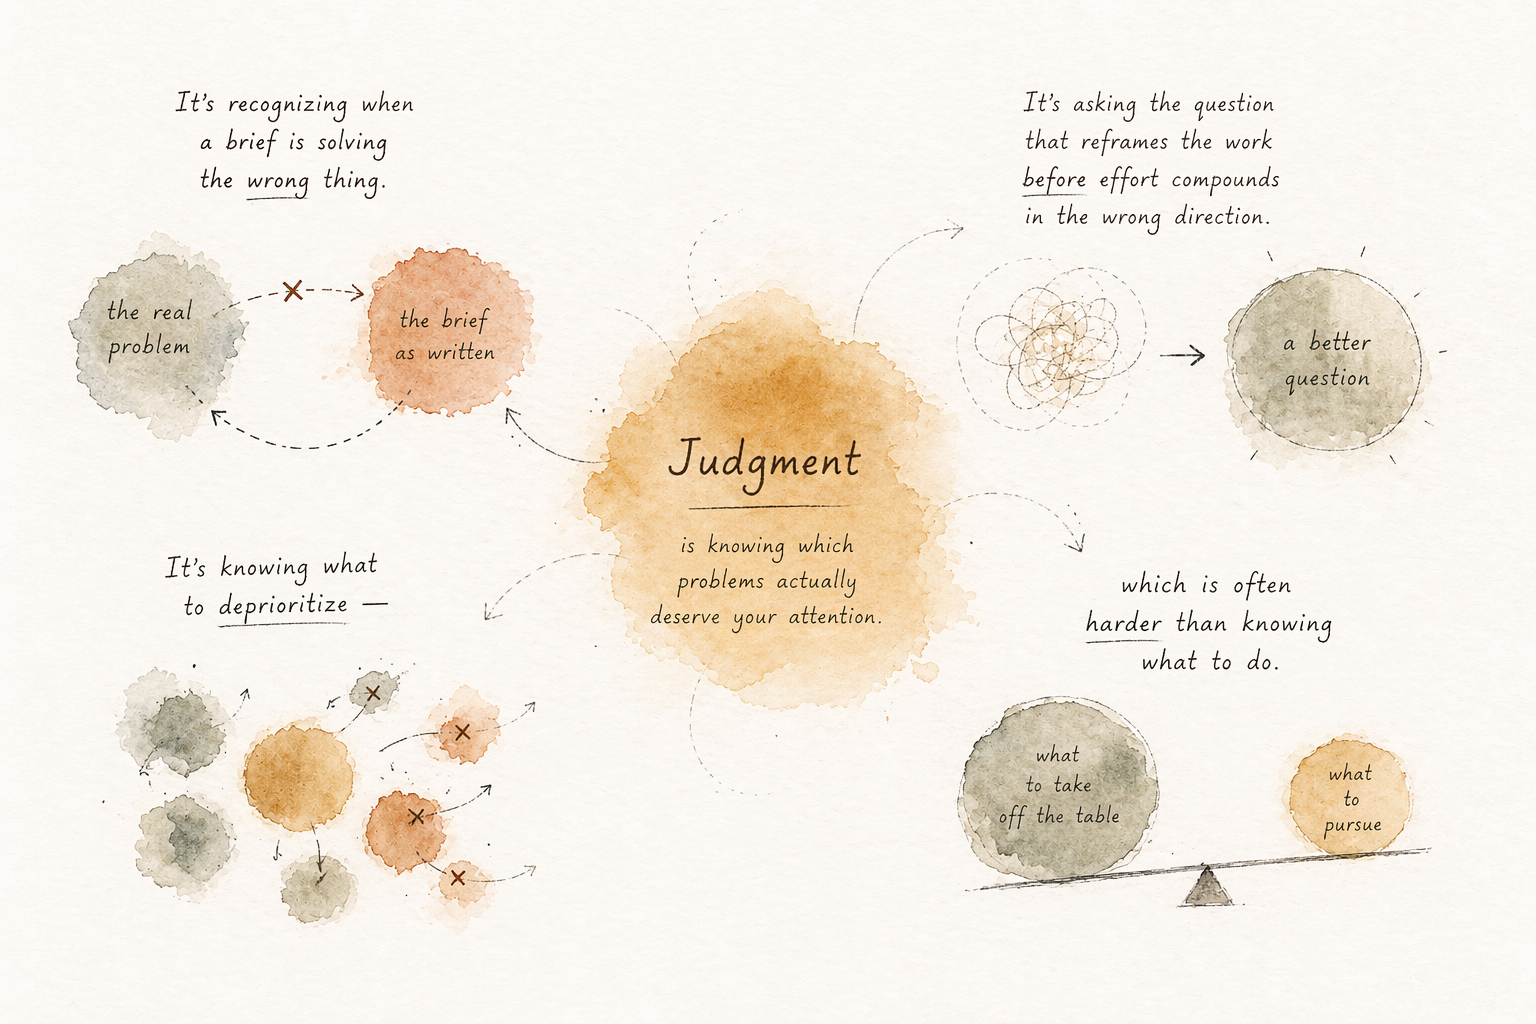 It's recognizing when
a brief is solving
the wrong thing.
the real
problem
the brief
as written
It's asking the question
that reframes the work
before effort compounds
in the wrong direction.
a better
question
Judgment
is knowing which
problems actually
deserve your attention.
It's knowing what
to deprioritize —
which is often
harder than knowing
what to do.
what
to take
off the table
what
to
pursue